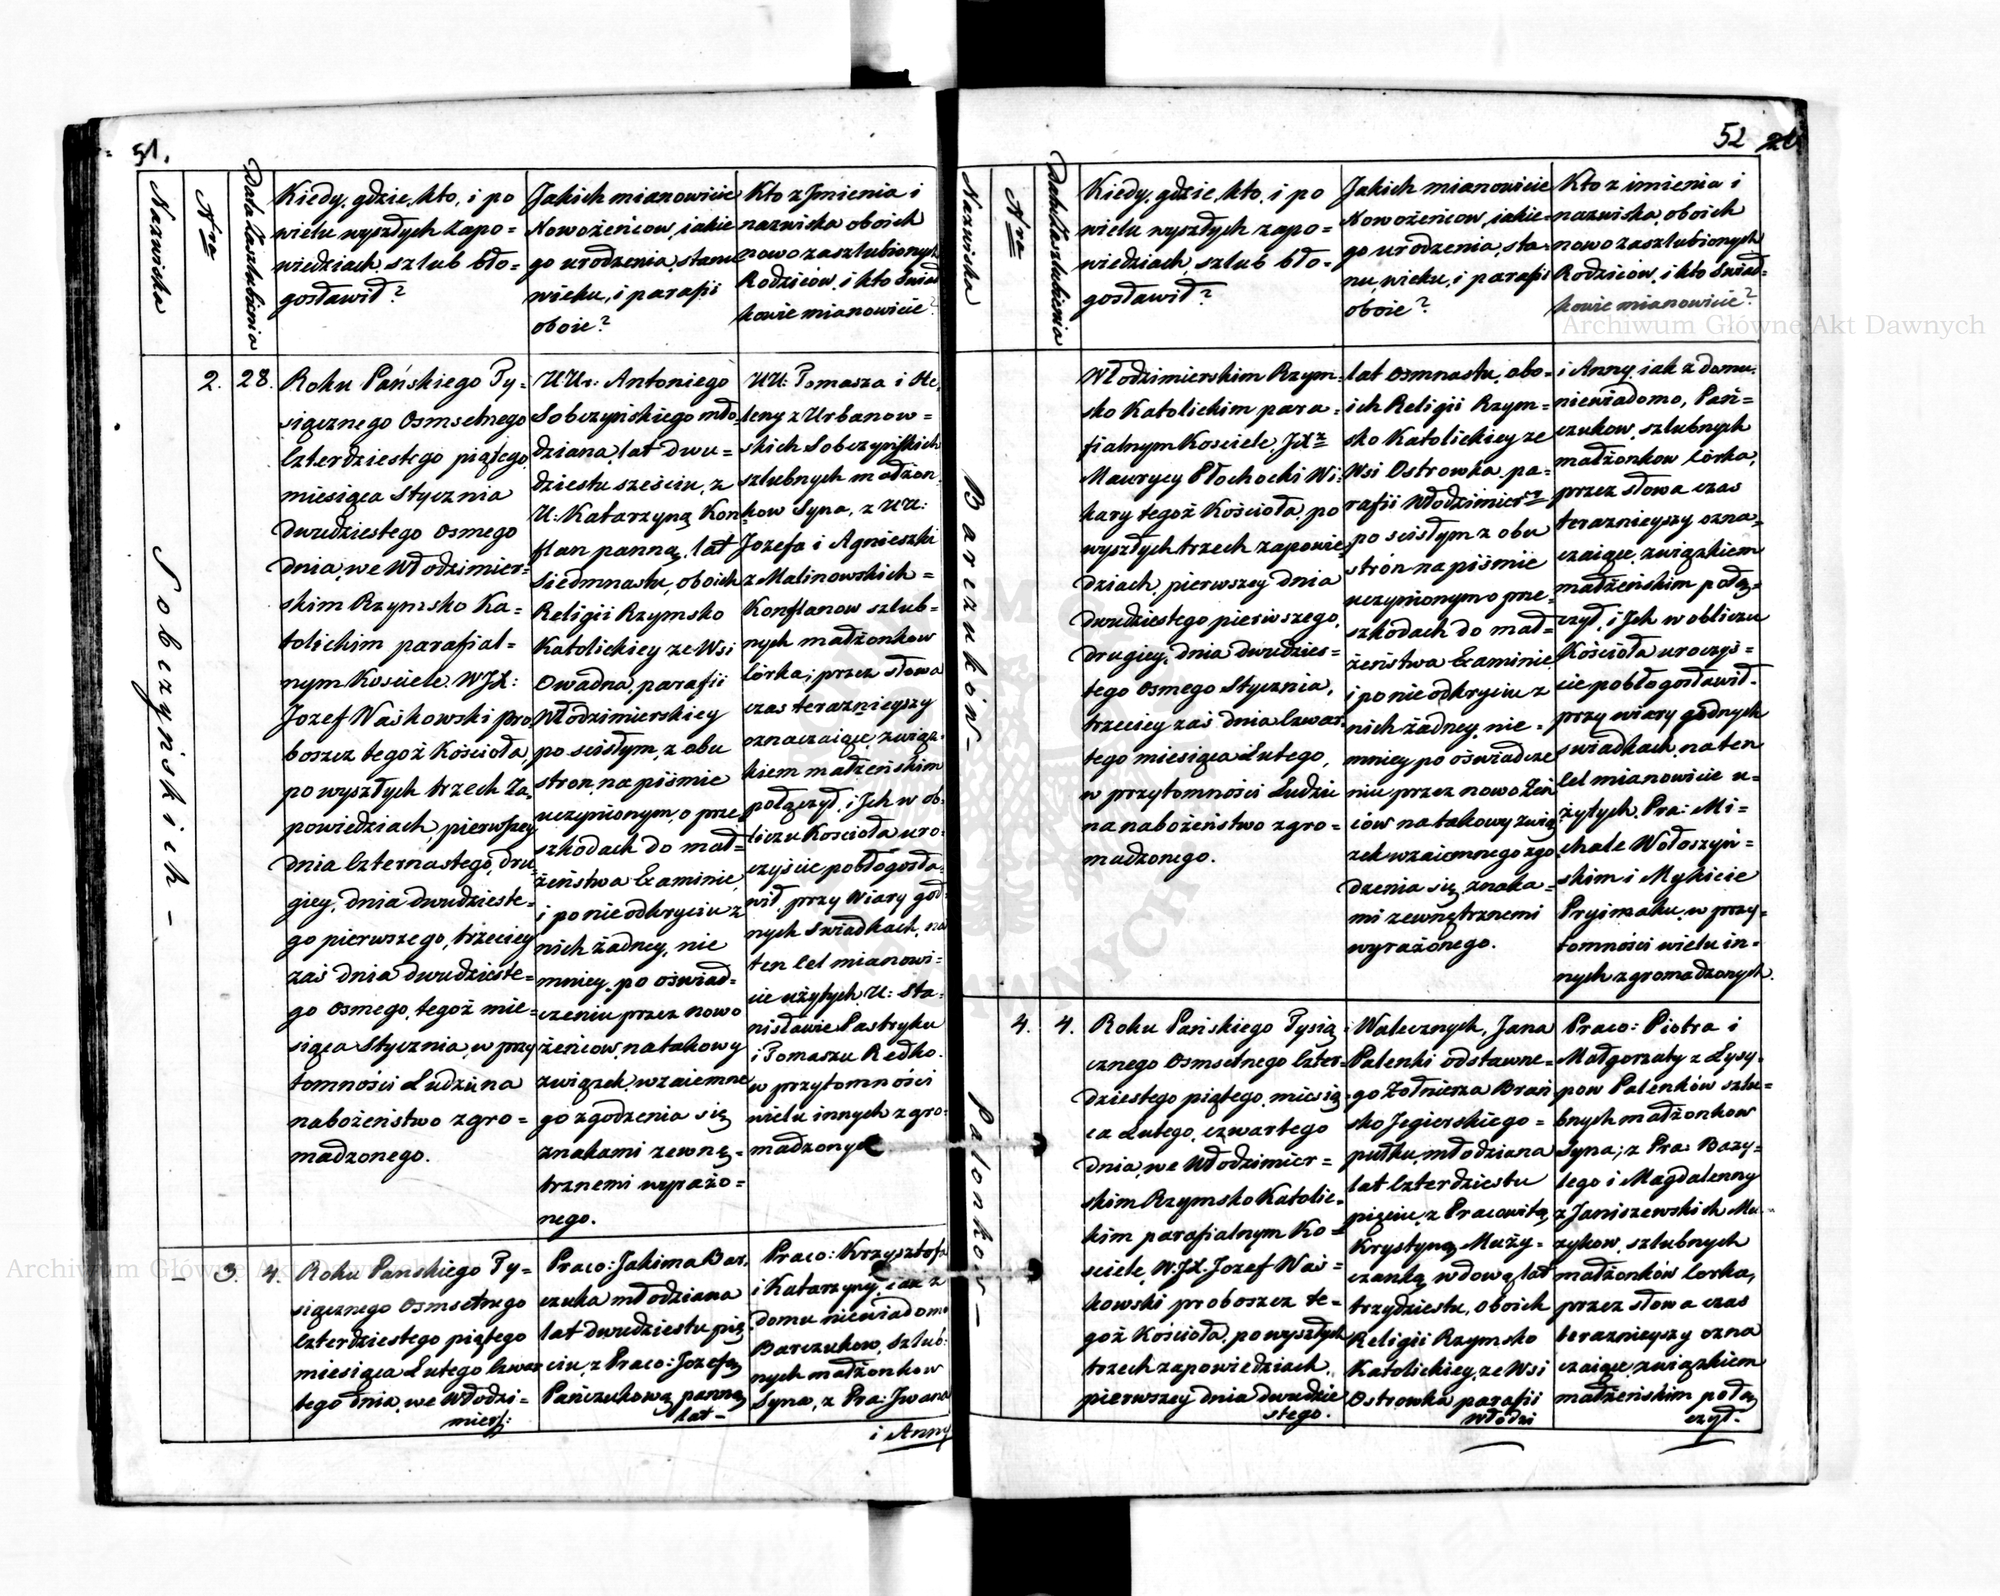 51.
Nazwiska
Nra
Data Zaszlubienia
Kiedy, gdzie, kto, i po
wielu wyszłych Zapo=
wiedziach, szlub bło=
gosławił?
Jakich mianowicie
Nowożeńcow, jakie
go urodzenia, stanu
wieku, i parafii
oboie?
Kto z Jmienia i
nazwiska oboich
nowo zaszlubionych
Rodziców, i kto Świad
kowie mianowicie?
Sobczyńskich -
2.
28.
Roku Pańskiego Ty=
siącznego Osmsetnego
Czterdziestego piątego
miesiąca Stycznia
Dwudziestego Osmego
Dnia, we Włodzimier=
skim Rzymsko Ka=
tolickim parafial=
nym Kościele. WJX:
Jozef Waśkowski pro
boszcz tegoż Kościoła,
po wyszłych trzech Za=
powiedziach, pierwszey
dnia Czternastego, dru
giey, dnia dwudzieste=
go pierwszego, trzeciey
zaś dnia dwudzieste=
go Osmego, tegoż mie=
siąca Stycznia, w przy
tomności Ludzi na
nabożeństwo zgro=
madzonego.
UUr: Antoniego
Sobczyńskiego mło
dziana, lat dwu=
dziestu sześciu, z
U: Katarzyną Kon
flan panną, lat
Siedmnastu, oboich
Religii Rzymsko
Katolickiey ze Wsi
Owadna, parafii
Włodzimierskiey
po scisłym, z obu
stron, na piśmie
uczynionym, o prze
szkodach do mał=
żeństwa Examinie,
i po nie odkryciu z
nich żadney, nie
mniey, po oświad=
czeniu przez nowo
żeńcow, na takowy
związek, wzaiemne
go zgodzenia się
znakami zewnę=
trznemi wyrażo=
nego.
UU: Tomasza i He,
leny z Urbanow=
skich Sobczyńskich
szlubnych małżon
kow Syna, z UU:
Jozefa i Agnieszki
z Malinowskich =
Konflanow szlub=
nych małżonkow
Córka; przez słowa
czas teraznieyszy
oznaczaiące, związ=
kiem małżeńskim
połączył, i Jch w ob=
liczu Kościoła uro=
czyście pobłogosła=
wił, przy Wiary god=
nych Swiadkach, na
ten Cel mianowi=
cie użytych, U: Sta=
nisławie Pastryku
i Tomaszu Redko.
w przytomności
wielu innych zgro=
madzonych
- 3.
4.
Roku Pańskiego Ty=
siącznego Osmsetnego
Czterdziestego piątego
miesiąca Lutego Czwar
tego dnia, we Włodzi=
miers:
Praco: Jakima Bar,
czuka młodziana
lat dwudziestu pię
ciu, z Praco: Jozefą
Pańczukową, panną
lat -
Praco: Krzysztofa
i Katarzyny, iak z
domu niewiadomo
Barczukow, szlub:
nych małżonkow
Syna, z Pra: Jwana
i Anny
52
Nazwiska
Nra
Data Zaszlubienia
Kiedy, gdzie, kto, i po
wielu wyszłych zapo=
wiedziach, szlub bło=
gosławił?
Jakich mianowicie
Nowożeńcow, jakie=
go urodzenia, sta=
nu, wieku, i parafii
oboie?
Kto z imienia i
nazwiska, oboich
nowo zaszlubionych
Rodziców, i kto Świad=
kowie mianowicie?
Barczuków -
Włodzimierskim Rzym=
sko Katolickim para=
fialnym Kościele, JXz
Maurycy Płochocki Wi=
kary tegoż Kościoła, po
wyszłych trzech zapowie
dziach, pierwszey dnia
Dwudziestego pierwszego,
drugiey, dnia dwudzies=
tego Osmego Stycznia,
trzeciey zaś dnia Czwar
tego miesiąca Lutego,
w przytomności Ludzi
na nabożeństwo zgro=
madzonego.
lat Osmnastu, obo=
ich Religii Rzym=
sko Katolickiey ze
Wsi Ostrowka, pa=
rafii Włodzimierz
po scisłym z obu
strón na piśmie
uczynionym o prze=
szkodach do mał=
żeństwa Examinie
i po nie odkryciu z
nich żadney, nie=
mniey po oświadcze
niu przez nowo żeń
ców na takowy zwią
zek wzaiemnego zgo
dzenia się, znaka=
mi zewnętrznemi
wyrażonego.
i Anny, iak z domu
niewiadomo, Pań=
czukow, szlubnych
małżonkow Córka,
przez słowa czas
teraznieyszy ozna,
czaiące, związkiem
małżeńskim połą=
czył, i Jch w obliczu
Kościoła uroczys=
cie pobłogosławił.
przy wiary godnych
swiadkach, na ten
Cel mianowicie u=
żytych, Pra: Mi=
chale Wołoszyń=
skim i Mykicie
Pryimaku, w przy=
tomności wielu in=
nych zgromadzonych.
Palonków -
4.
4.
Roku Pańskiego Tysią
cznego Osmsetnego Czter=
dziestego piątego, miesią
ca Lutego, czwartego
Dnia, we Włodzimier=
skim Rzymsko Katolic=
kim parafialnym Ko=
sciele, W:JX. Jozef Waś=
kowski proboszcz te=
goż Kościoła, po wyszłych
trzech zapowiedziach,
pierwszey dnia dwudzie
stego.
Walecznych, Jana
Palenki odstawne=
go Żołnierza Brań
sko Jegierskiego=
pułku, młodziana
lat Czterdziestu
pięciu, z Pracowitą
Krystyną Muży=
czanką, wdową, lat
trzydziestu, oboich
Religii Rzymsko
Katolickiey, ze Wsi
Ostrowka parafii
Włodzi
Praco: Piotra i
Małgorzaty z Łysy=
pow Palenków szlu=
bnych małżonkow
Syna; z Pra: Bazy=
lego i Magdalenny
z Janiszewskich Mu
zykow, szlubnych
małżonków Corka,
przez słowa czas
teraznieyszy ozna
czaiące, związkiem
małżeńskim połą
czył.
Archiwum Główne Akt Dawnych
Archiwum Główne Akt Dawnych